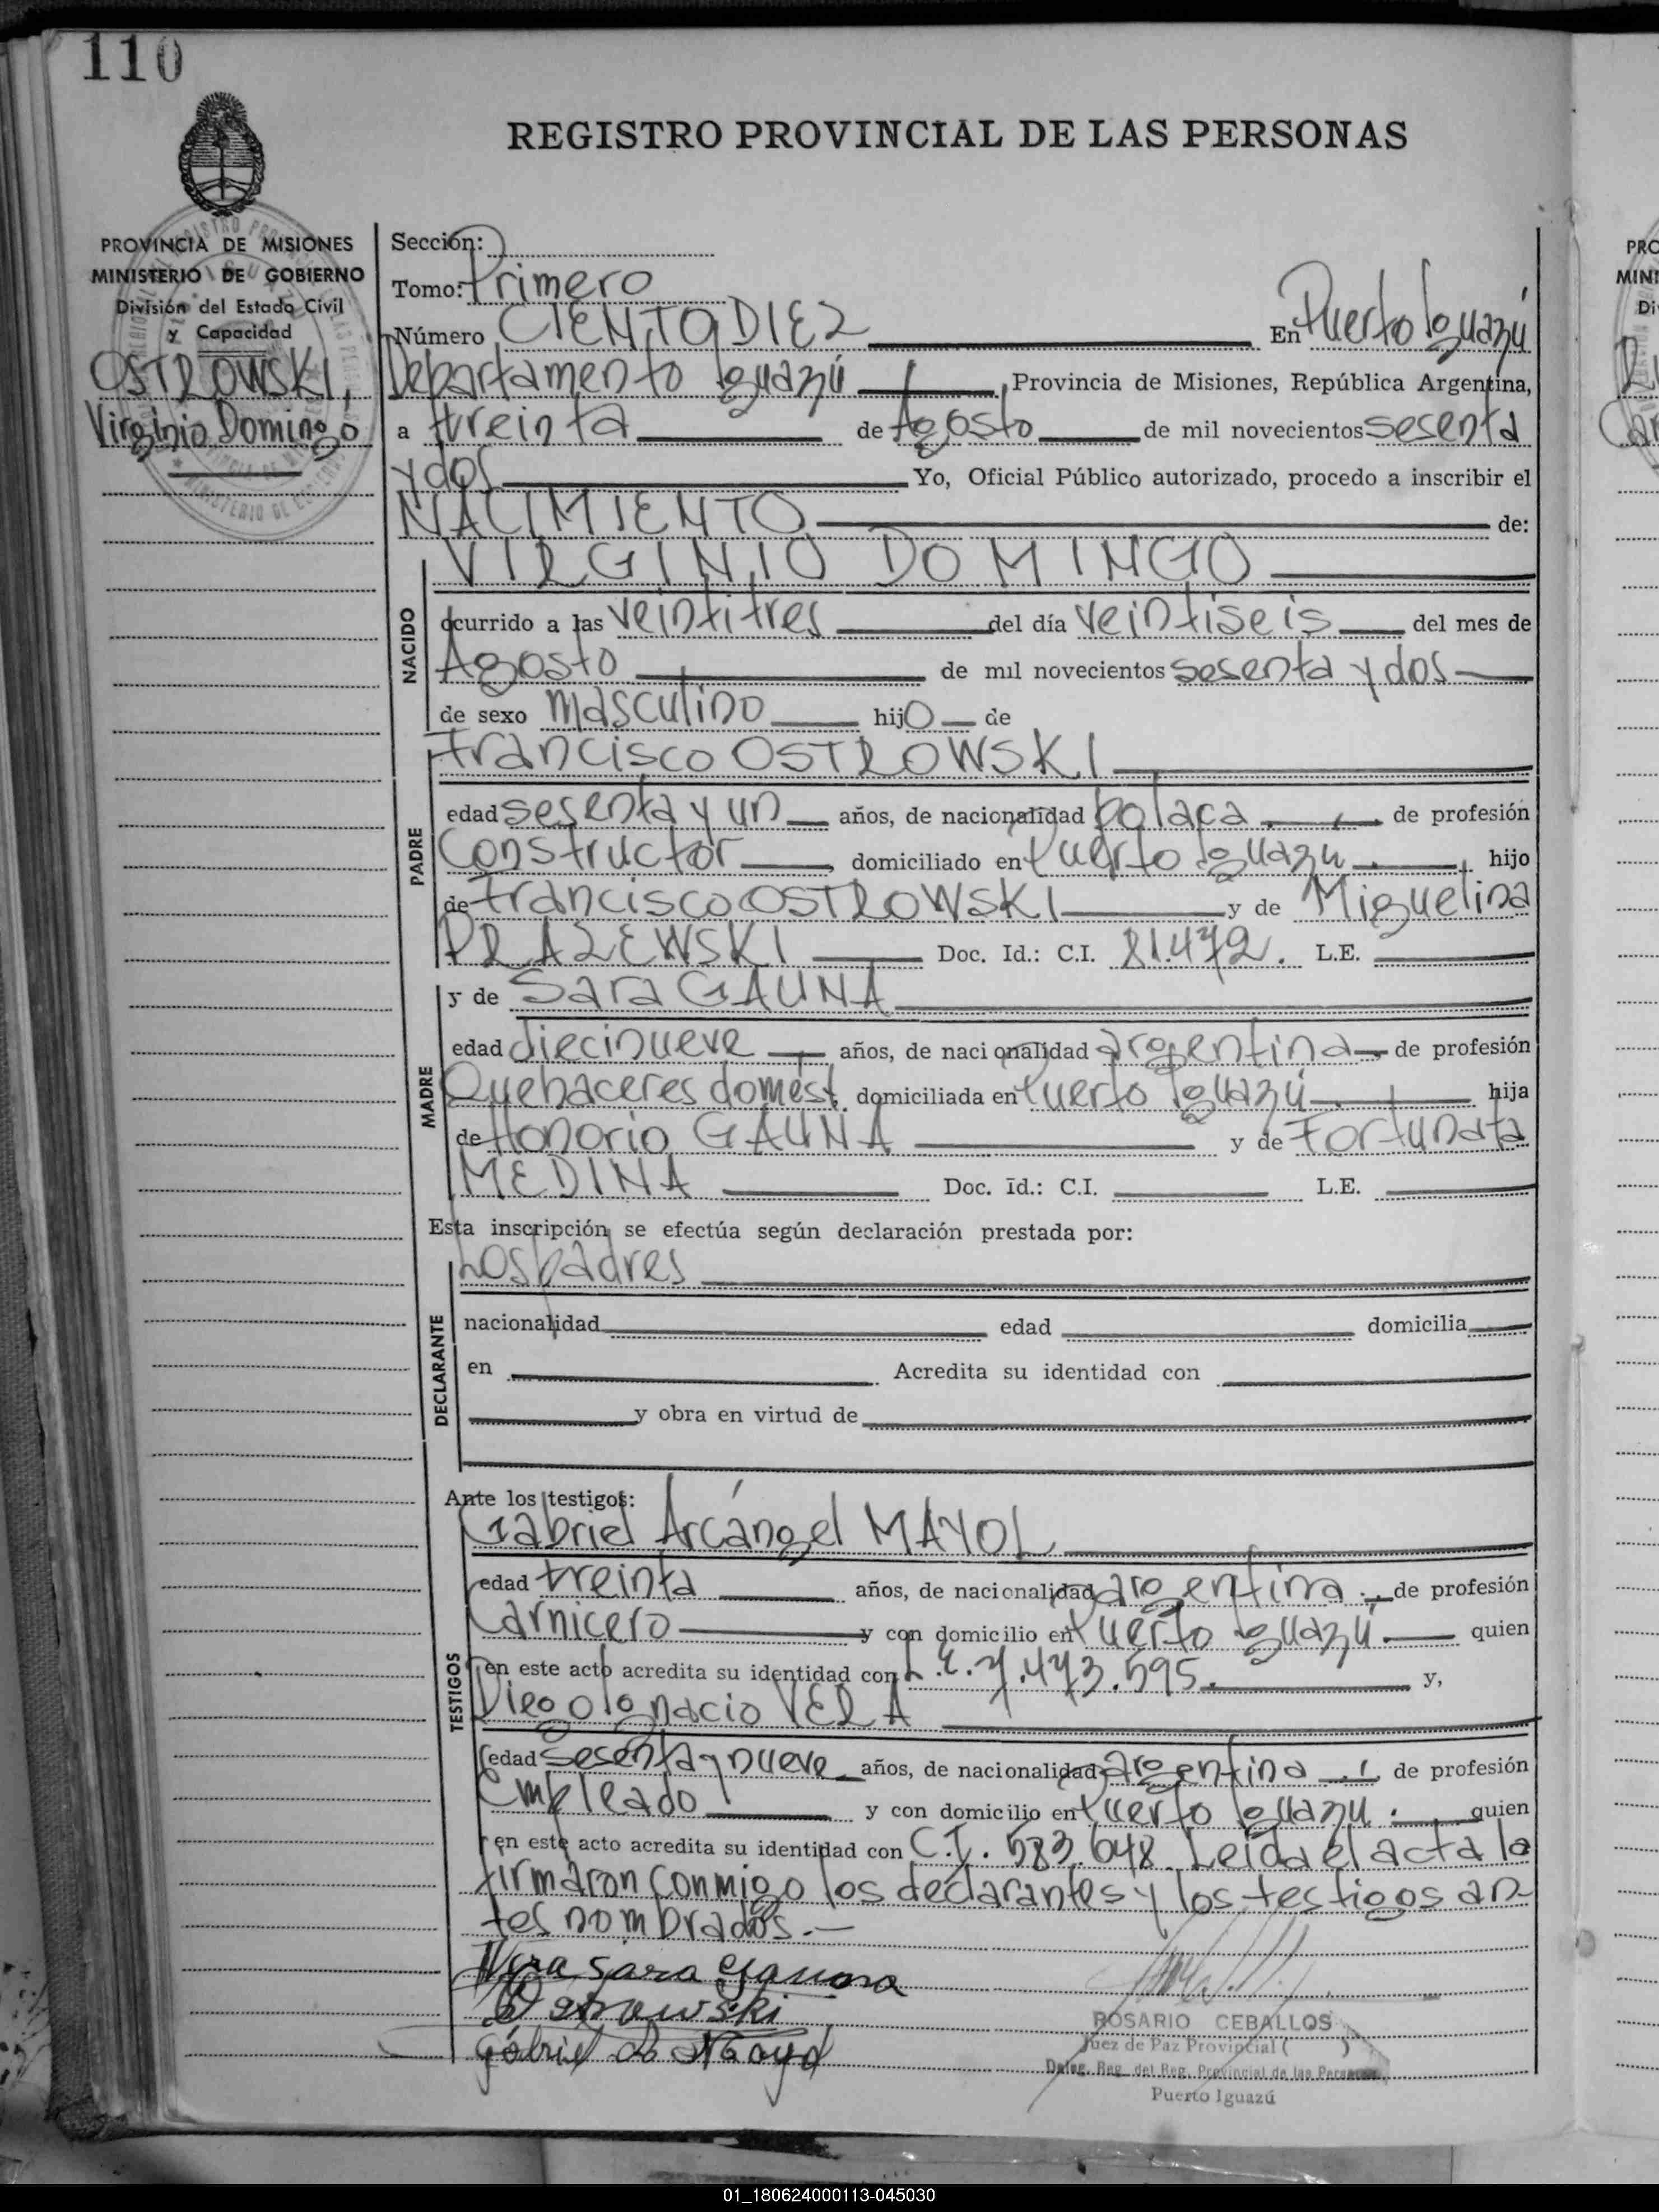 110
REGISTRO PROVINCIAL DE LAS PERSONAS
PROVINCIA DE MISIONES
MINISTERIO DE GOBIERNO
División del Estado Civil
y Capacidad
OSTROWSKI,
Virginio Domingo
Sección:
Tomo: Primero
Número CIENTO DIEZ En Puerto Iguazú
Departamento Iguazú, Provincia de Misiones, República Argentina,
a treinta de Agosto de mil novecientos sesenta
y dos Yo, Oficial Público autorizado, procedo a inscribir el
NACIMIENTO de:
NACIDO
VIRGINIO DOMINGO
ocurrido a las veintitres del día veintiseis del mes de
Agosto de mil novecientos sesenta y dos
de sexo masculino hijo de
PADRE
Francisco OSTROWSKI
edad sesenta y un años, de nacionalidad polaca, de profesión
Constructor, domiciliado en Puerto Iguazu, hijo
de Francisco OSTROWSKI y de Miguelina
PRAZEWSKI Doc. Id.: C.I. 81.472. L.E.
MADRE
y de Sara GAUNA
edad diecinueve años, de nacionalidad argentina, de profesión
Quehaceres domést, domiciliada en Puerto Iguazú hija
de Honorio GAUNA y de Fortunata
MEDINA Doc. Id.: C.I. L.E.
Esta inscripción se efectúa según declaración prestada por:
DECLARANTE
Los padres
nacionalidad edad domicilia
en Acredita su identidad con
y obra en virtud de
Ante los testigos:
TESTIGOS
Gabriel Arcángel MAYOL
edad treinta años, de nacionalidad argentina, de profesión
Carnicero y con domicilio en Puerto Iguazú. quien
en este acto acredita su identidad con L.E. 7.473.595. y,
Diego Ignacio VERA
edad sesenta y nueve años, de nacionalidad argentina, de profesión
Empleado y con domicilio en Puerto Iguazu. quien
en este acto acredita su identidad con C.I. 583.648. Leida el acta la
firmaron conmigo los declarantes y los testigos an-
tes nombrados.-
Sara Gauna
Ostrowski
Gabriel Mayol
ROSARIO CEBALLOS
Juez de Paz Provincial ( )
Deleg. Reg. del Reg. Provincial de las Personas
Puerto Iguazú
01_180624000113-045030